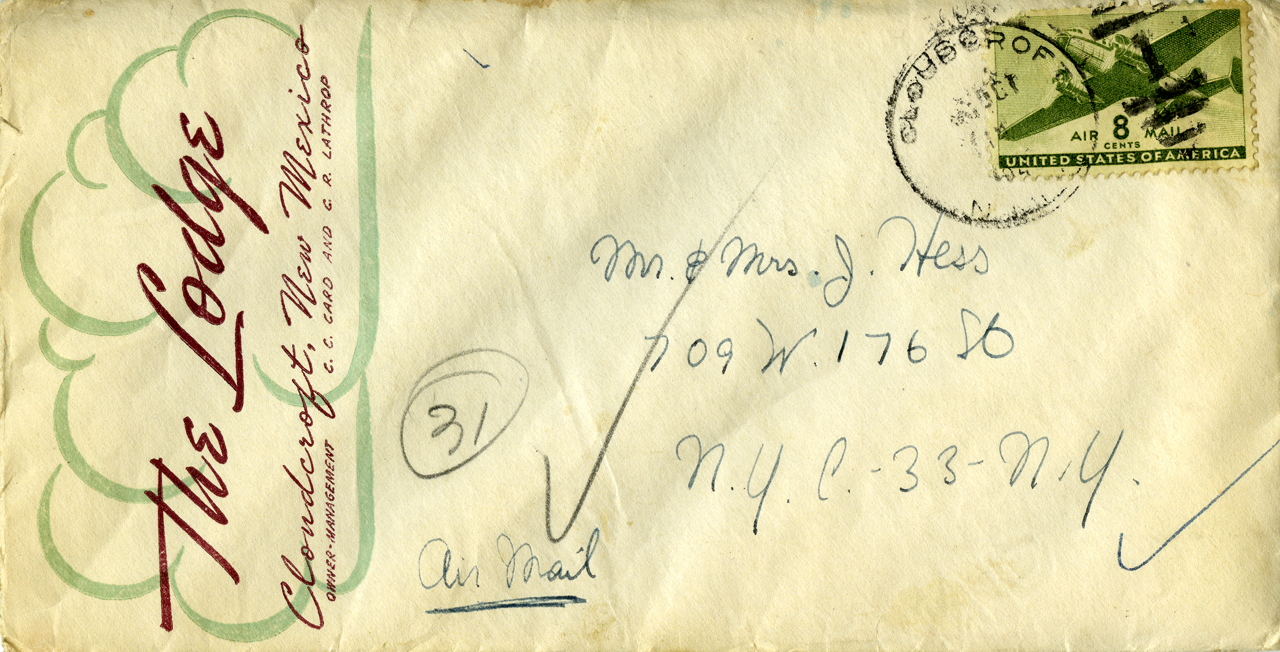 The Lodge
Cloudcroft, New Mexico
OWNER-MANAGEMENT C. C. CARD AND G. R. LATHROP
CLOUDCROFT
OCT
N. M.
AIR 8 MAIL
CENTS
UNITED STATES OF AMERICA
Mr. & Mrs. J. Hess
709 W. 176 St
N.Y. C.-33-N.Y.
31
Air Mail